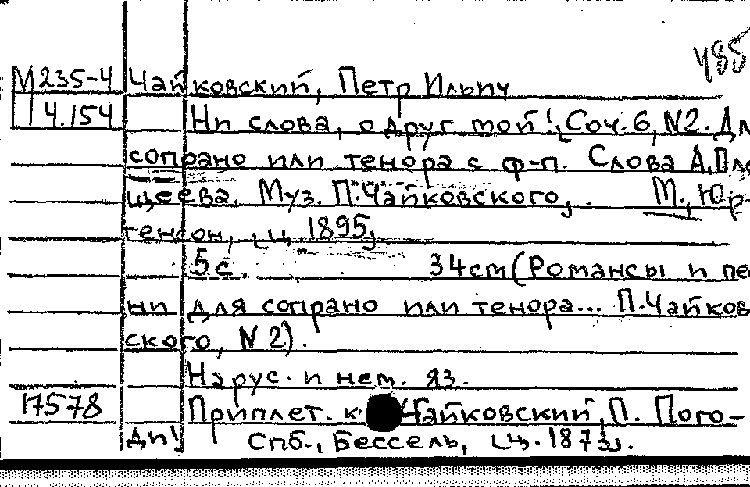 485
М235-4 Чайковский, Петр Ильич
П 4.154 Ни слова, о друг мой!, Соч. 6, N2. Дл
сопрано или тенора с ф-п. Слова А. Пле
щеева. Муз. П. Чайковского, . М., Юр-
генсон, ц. 1895,
5 с. 34 cm (Романсы и пе
ни для сопрано или тенора... П. Чайков
ского, N 2).
На рус. и нем. яз.
17578 Приплет. к Чайковский, П. Пого-
ди! Спб., Бессель, ц. 1873.